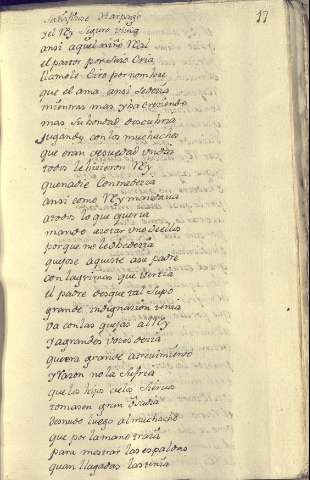 17
Satisfizose Harpago
y el Rey seguro vivia
ansi aquel niño Real
el pastor por suio cria
llamole Ciro por nombre
que el ama ansi le decia
mientras mas yba creciendo
mas su bondad descubria
Jugando con los muchachos
que eran de su edad un dia
todos le hicieron Rey
que nadie contradecia
ansi como Rey mandava
a todos lo que queria
mando azotar uno de ellos
porque no le obedecia
quejose aqueste a su padre
con lagrimas que vertia
el padre desque tal supo
grande indignacion tenia
va con las quejas al Rey
y a grandes voces decia
que era grande atrevimiento
y razon no lo sufria
que los hijos de los siervos
tomasen gran
desnudo luego al muchacho
que por la mano traia
para mostrar las espaldas
quan llagadas las tenia